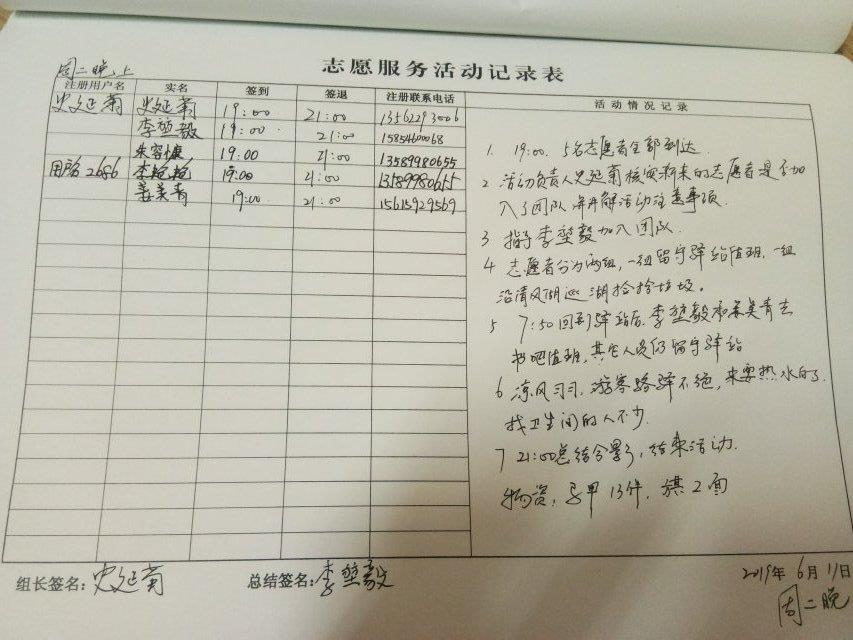 志愿服务活动记录表
周二晚上
注册用户名 实名 签到 签退 注册联系电话 活动情况记录
史延菊 史延菊 19:00 21:00 13562293006
李堃毅 19:00 21:00 15854600068
朱容健 19:00 21:00 13589980655
用户名2686 李艳艳 19:00 21:00 13589980615
姜美青 19:00 21:00 15615929569
1. 19:00. 5名志愿者全部到达.
2 活动负责人史延菊核实新来的志愿者是否加
入了团队 并讲解活动注意事项.
3 指导李堃毅加入团队.
4 志愿者分为两组,一组留守驿站值班,一组
沿清风湖巡湖捡拾垃圾。
5 7:50回到驿站后,李堃毅和姜美青去
书吧值班,其它人员仍留守驿站
6 凉风习习,游客络绎不绝,来要热水的了.
找卫生间的人不少.
7 21:00总结合影,结束活动.
物资,马甲13件.旗2面
组长签名:史延菊 总结签名:李堃毅
2019年6月11日
周二晚